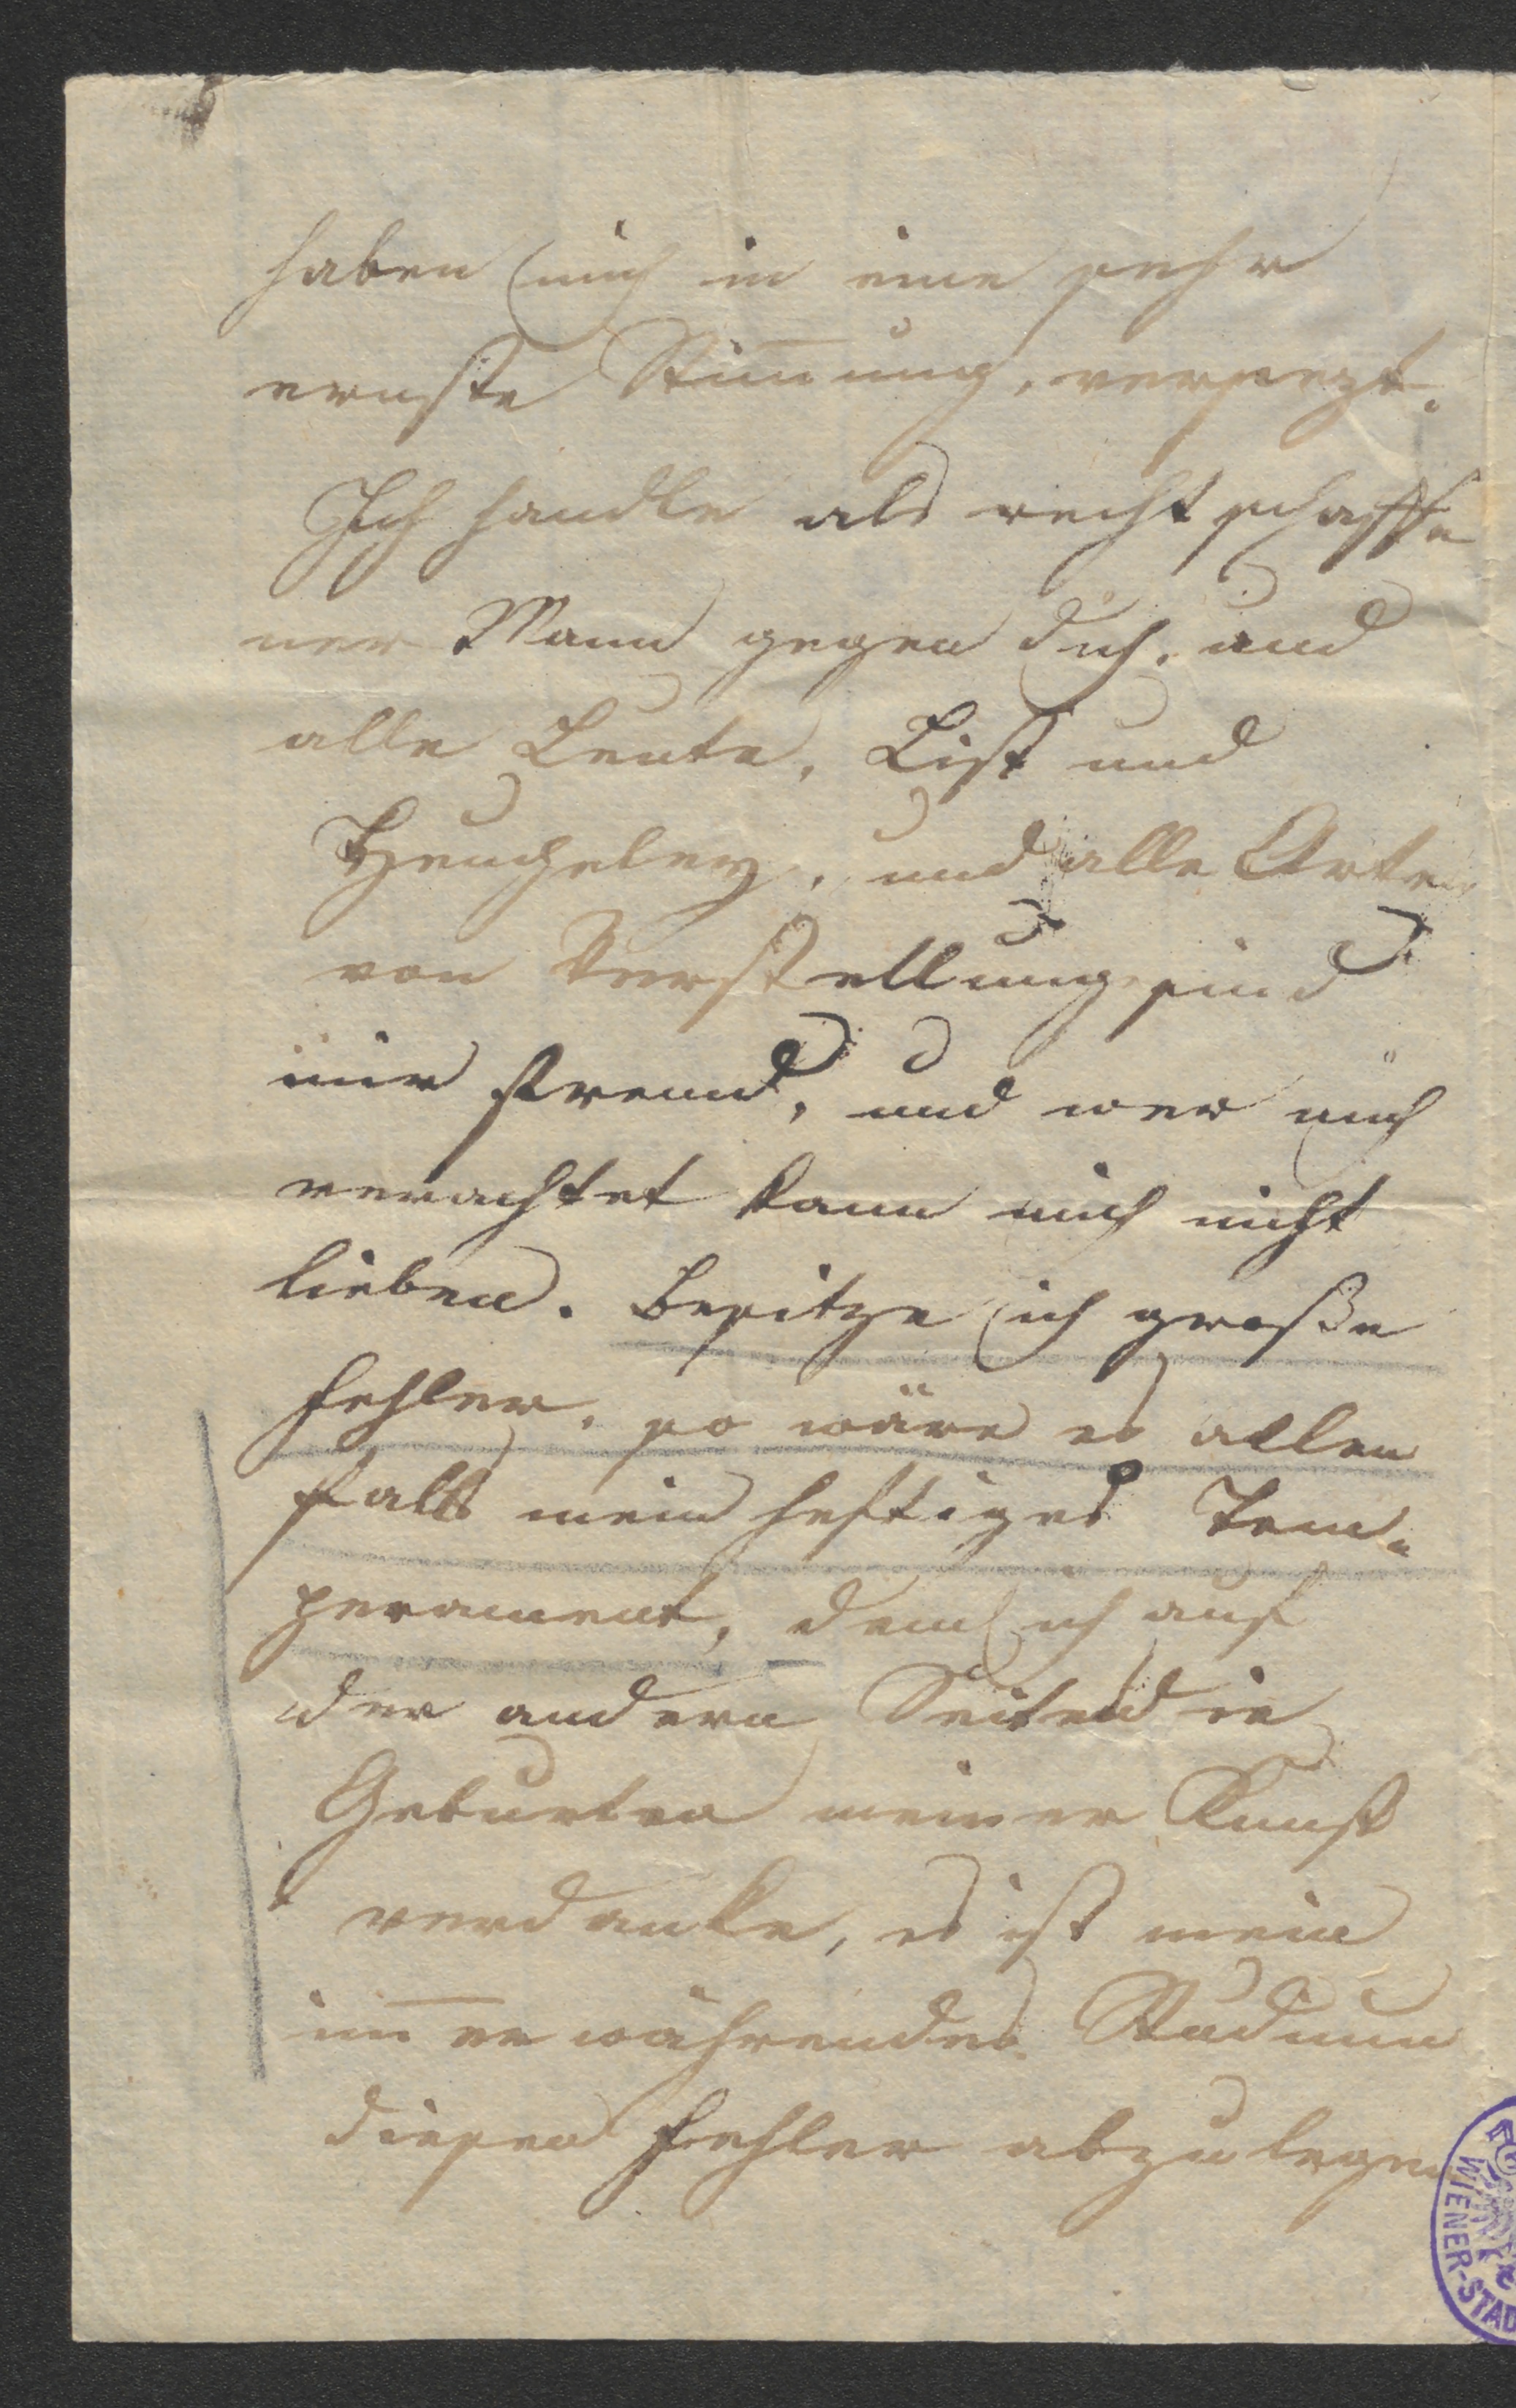 haben mich in eine sehr
ernste Stim̅ung, versezt.
Ich handle als rechtschaffe
ner Mann gegen dich, und
alle Leute, List und
Heucheley, und alle Arten
von Verstellung sind
mir fremd, und wer mich
verachtet kann mich nicht
lieben. Besitze ich große
Fehler, so wäre es allen
falls mein heftiges Tem=
perament, dem ich auf
der andern Seite die
Geburten meiner Kunst
verdanke, es ist mein
im̅erwährendes Studium
diesen Fehler abzulegen
WIENER-STAD